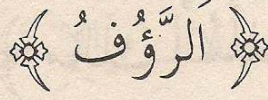 اَلرَّؤُفُ